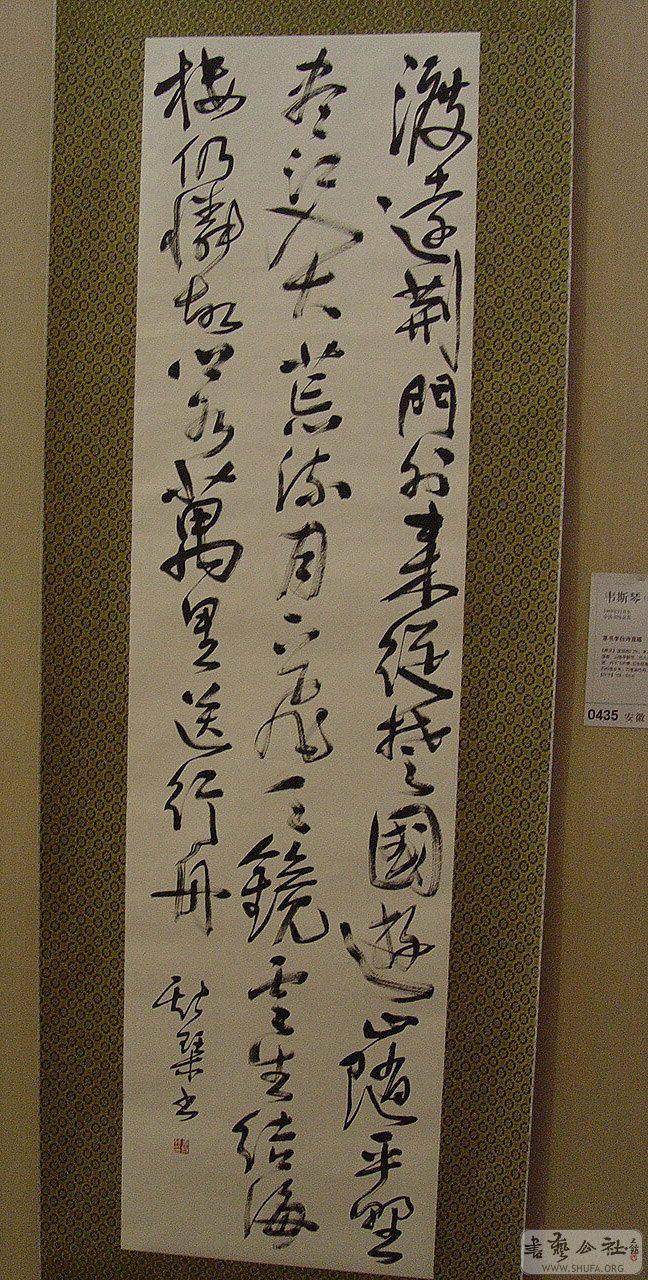 渡遠荊門外来從楚國遊山隨平野
盡江入大荒流月下飛天鏡雲生結海
樓仍憐故鄉水萬里送行舟
斯琴書
韦斯琴
草书李白诗直幅
0435 安徽
書藝公社
WWW.SHUFA.ORG